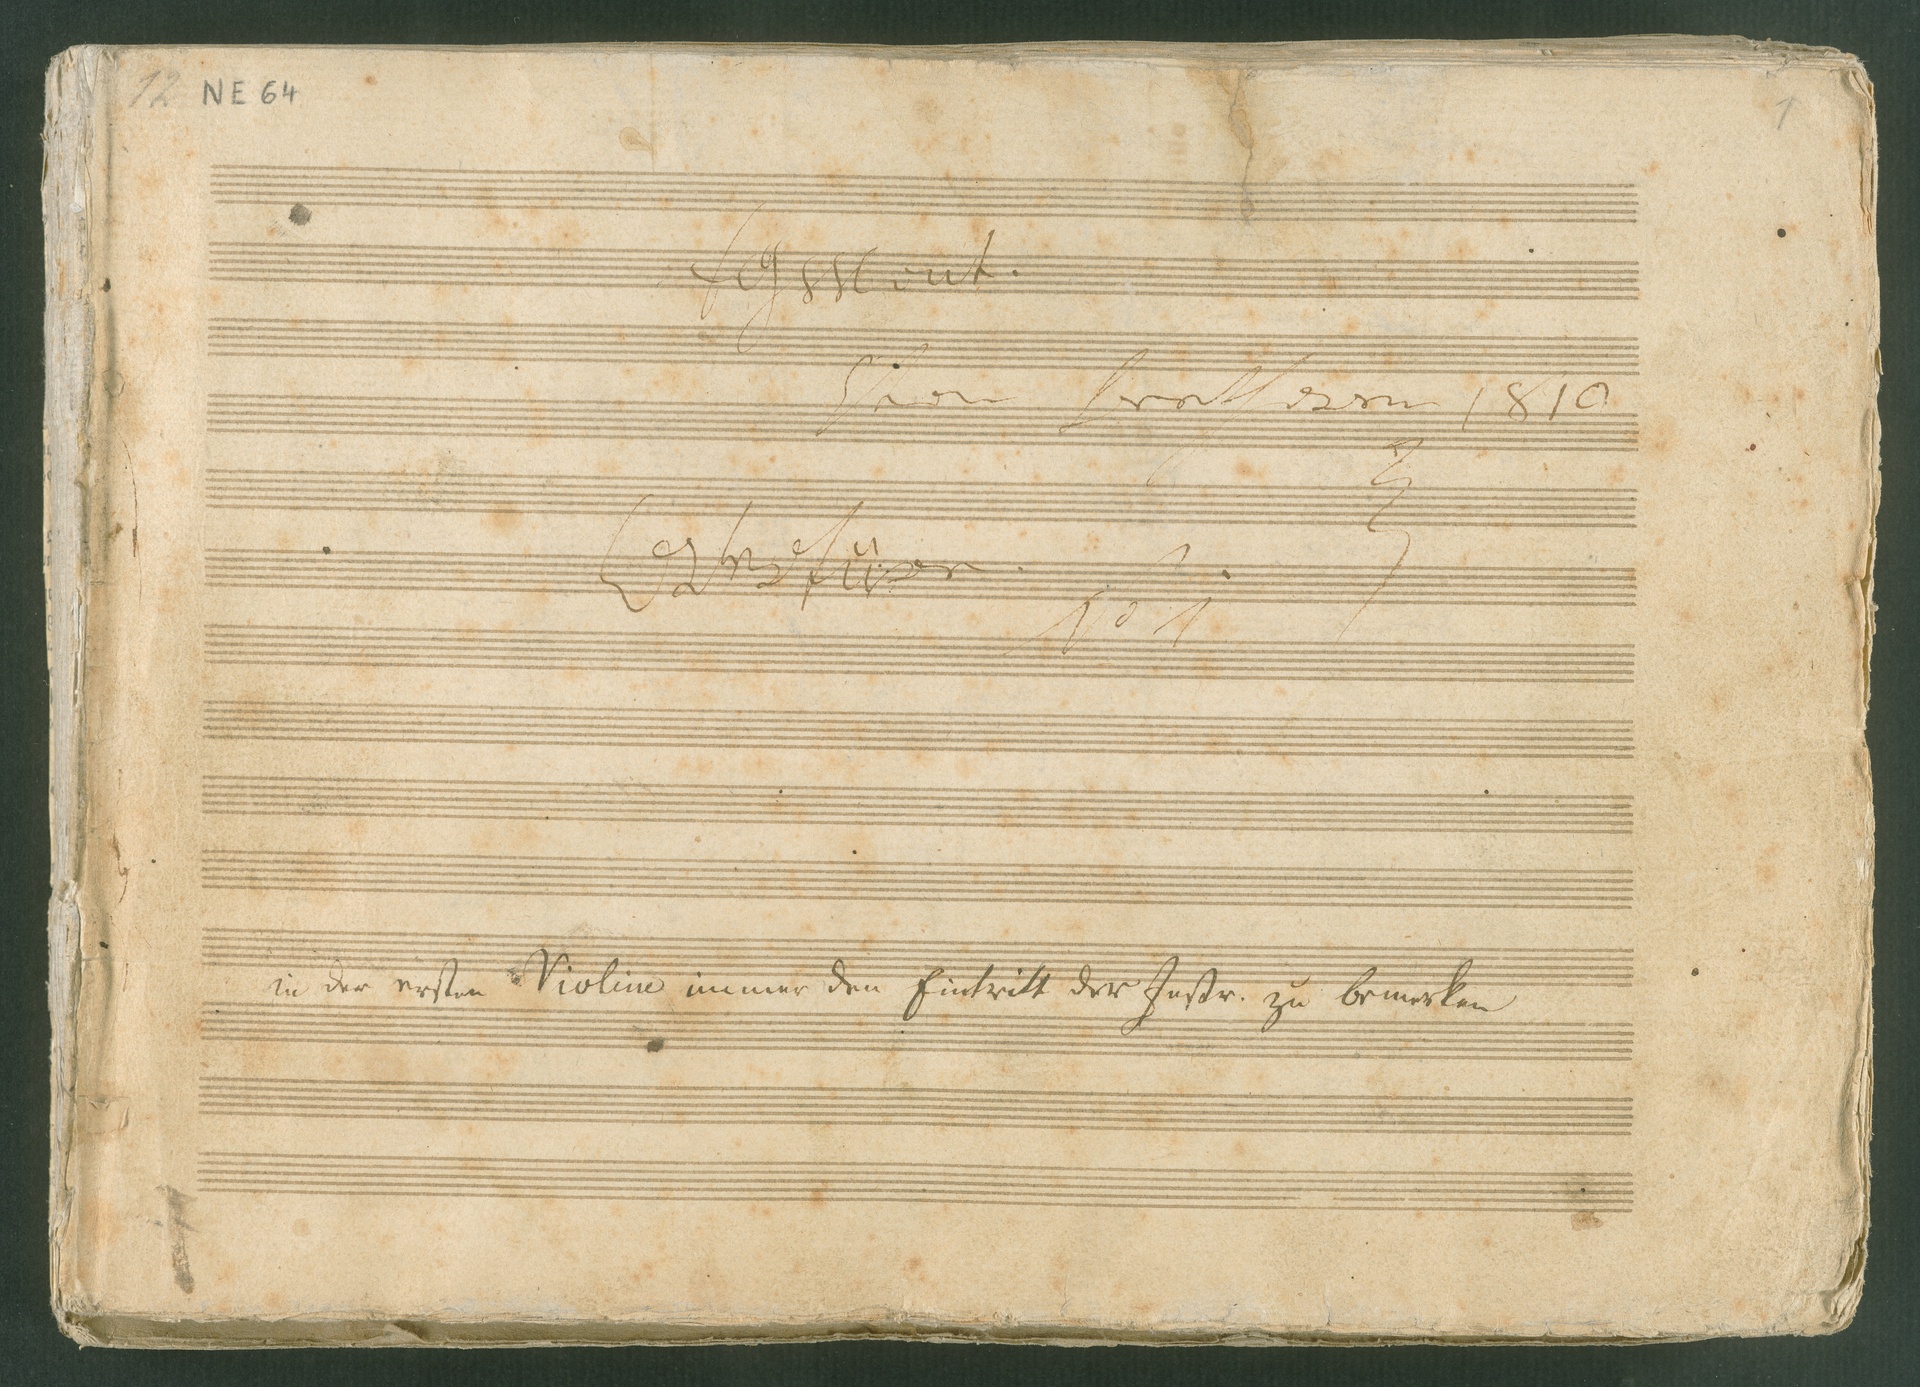 12 NE 64
1
Egmont.
Von Beethowen 1810
No 1.
in der ersten Violine immer den Eintritt der Instr. zu bemerken